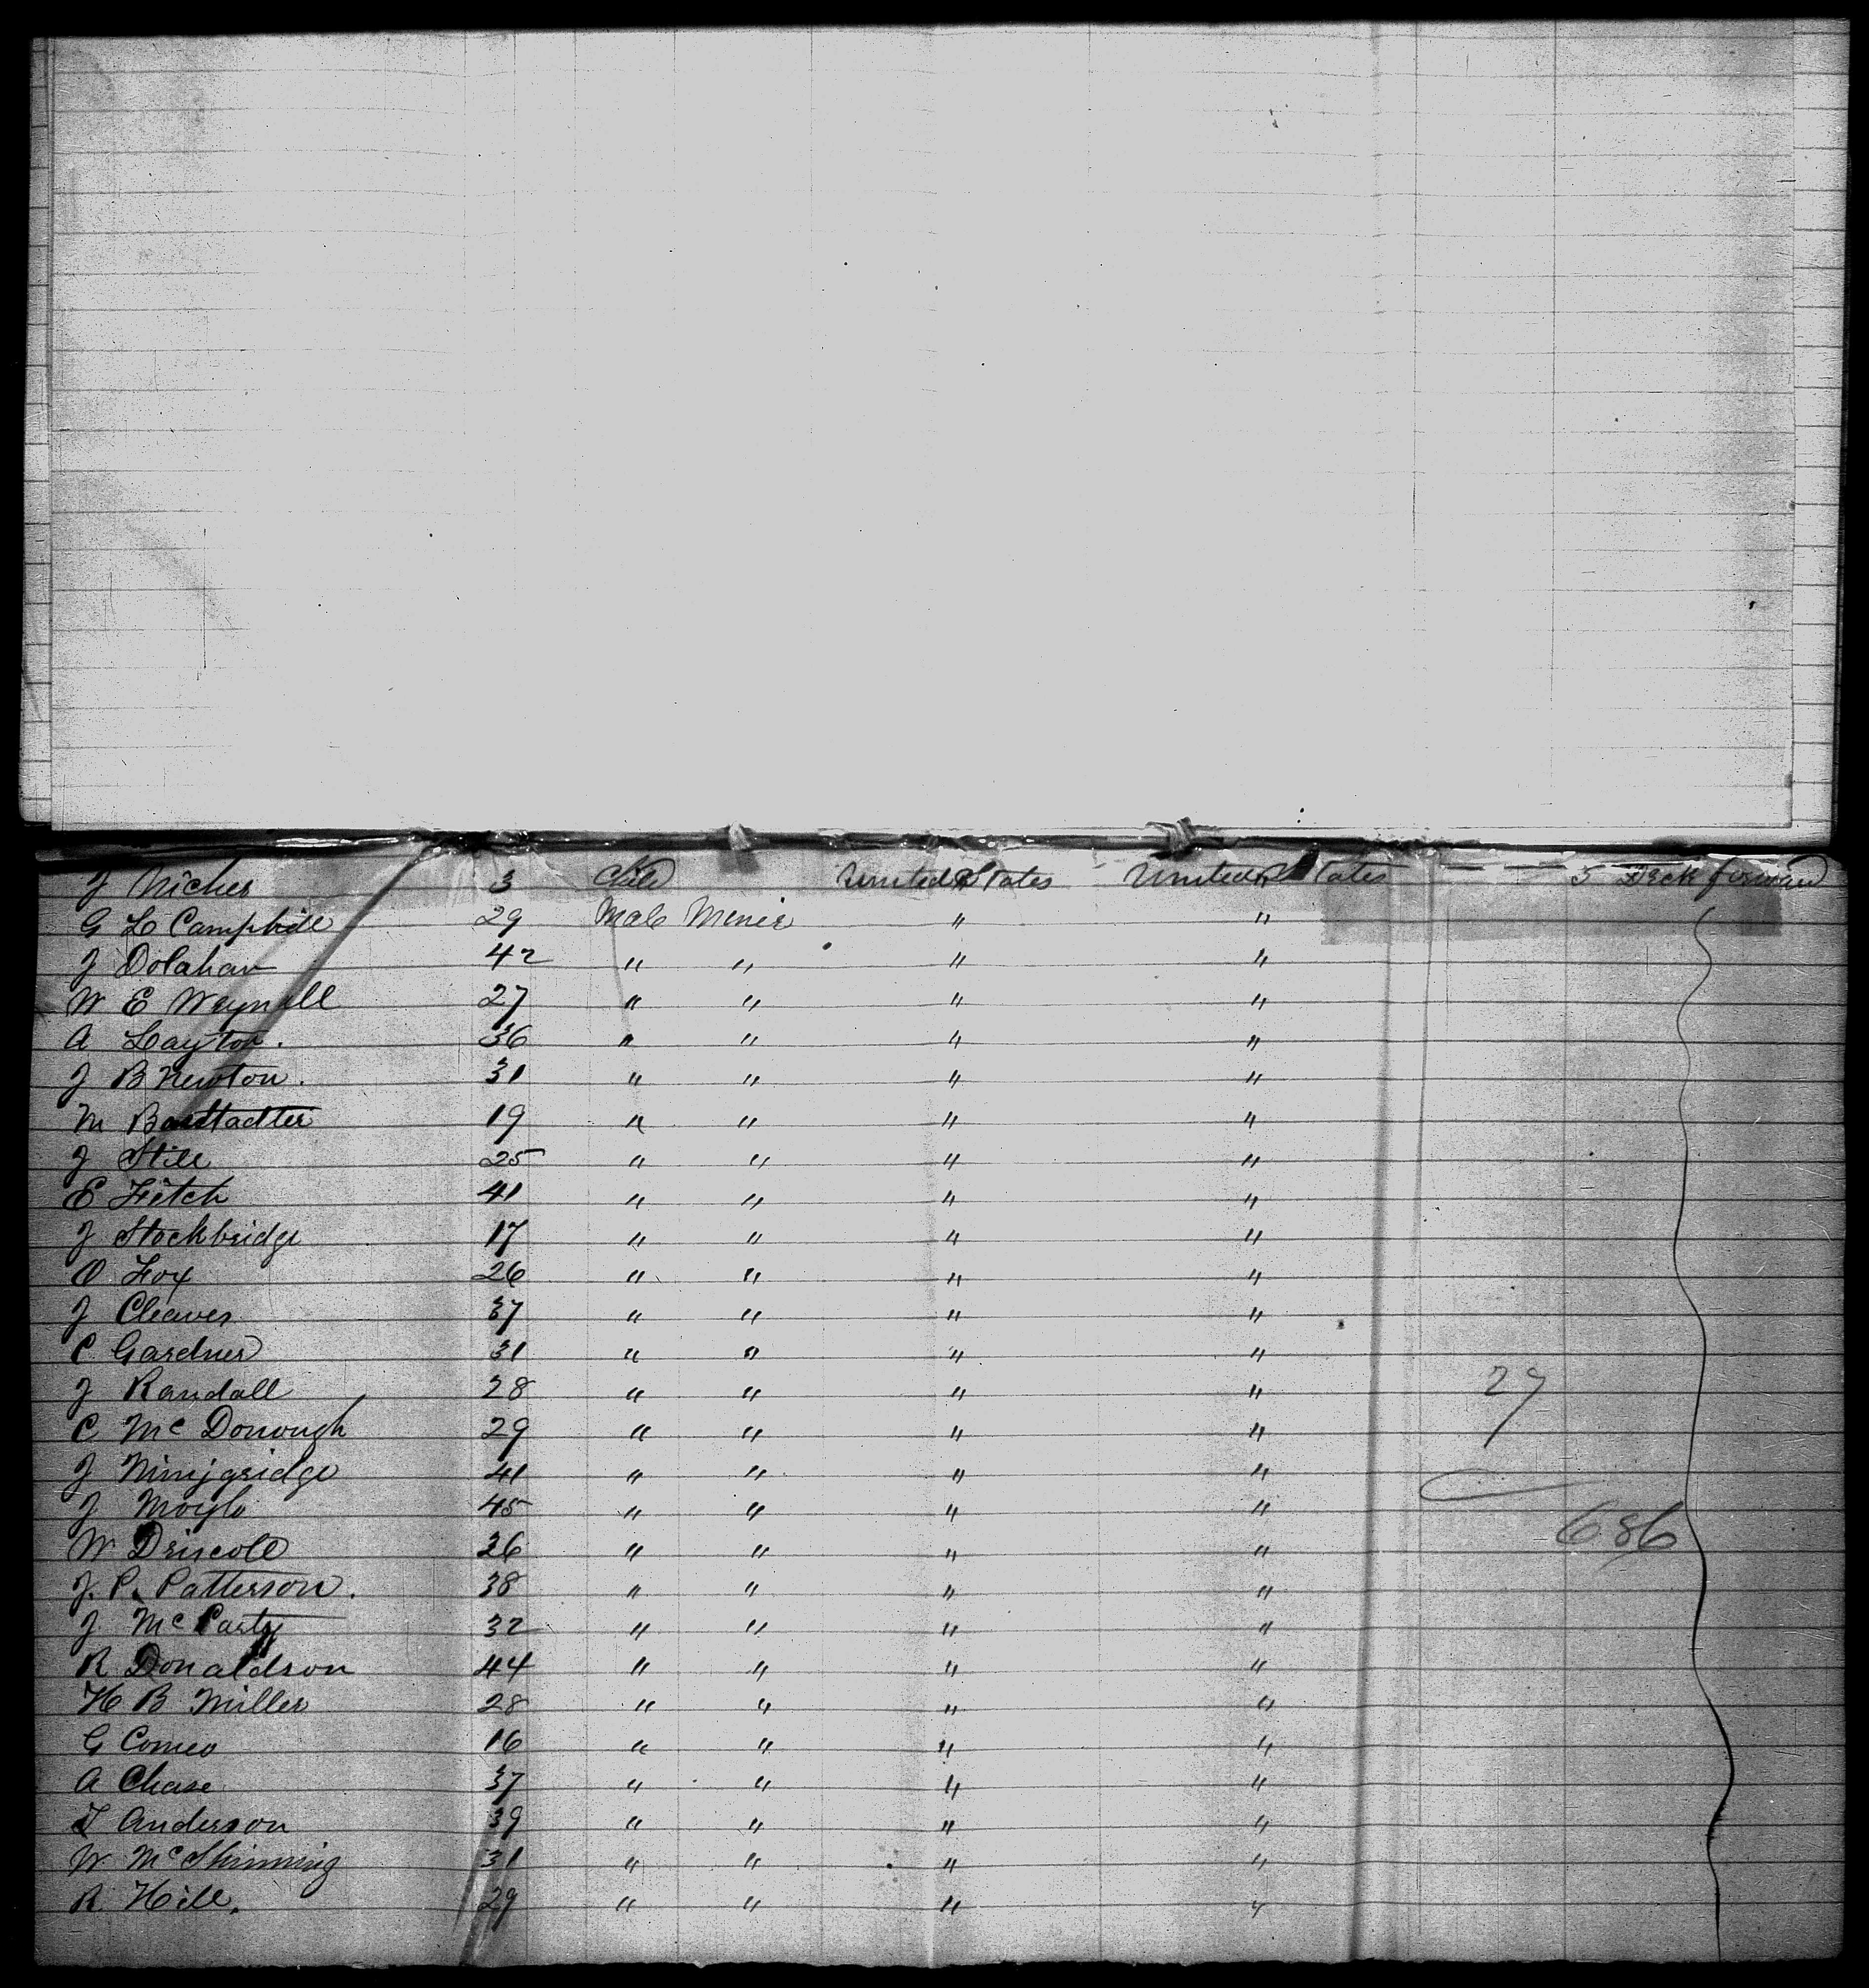 J Niches 3 Child United States United States 5 Deck forward
G L Campbill 29 Male Miner " "
J Dolahan 42 " " " "
W E Weynall 27 " " " "
A Layton. 36 " " " "
J B Newton. 31 " " " "
M 19 " " " "
J Still 25 " " " "
E Fitch 41 " " " "
J Stockbridge 17 " " " "
O Fox 26 " " " "
J Cleaves 37 " " " "
C Gardner 31 " " " "
J Randall 28 " " " " 27
C Mc Donough 29 " " " "
J 41 " " " "
J Moylo 45 " " " "
W Driscoll 26 " " " " 686
J. P. Patterson. 38 " " " "
J Mc Carty 32 " " " "
R Donaldson 44 " " " "
H B Miller 28 " " " "
G Comeo 16 " " " "
A Chase 37 " " " "
T Anderson 39 " " " "
W 31 " " " "
R Hill. 29 " " " "